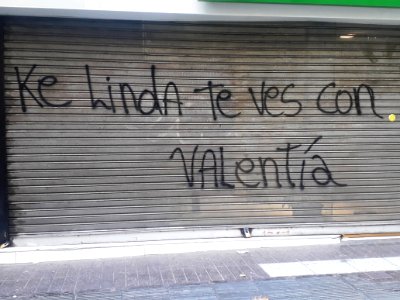 Ke LindA te ves con
VALentía